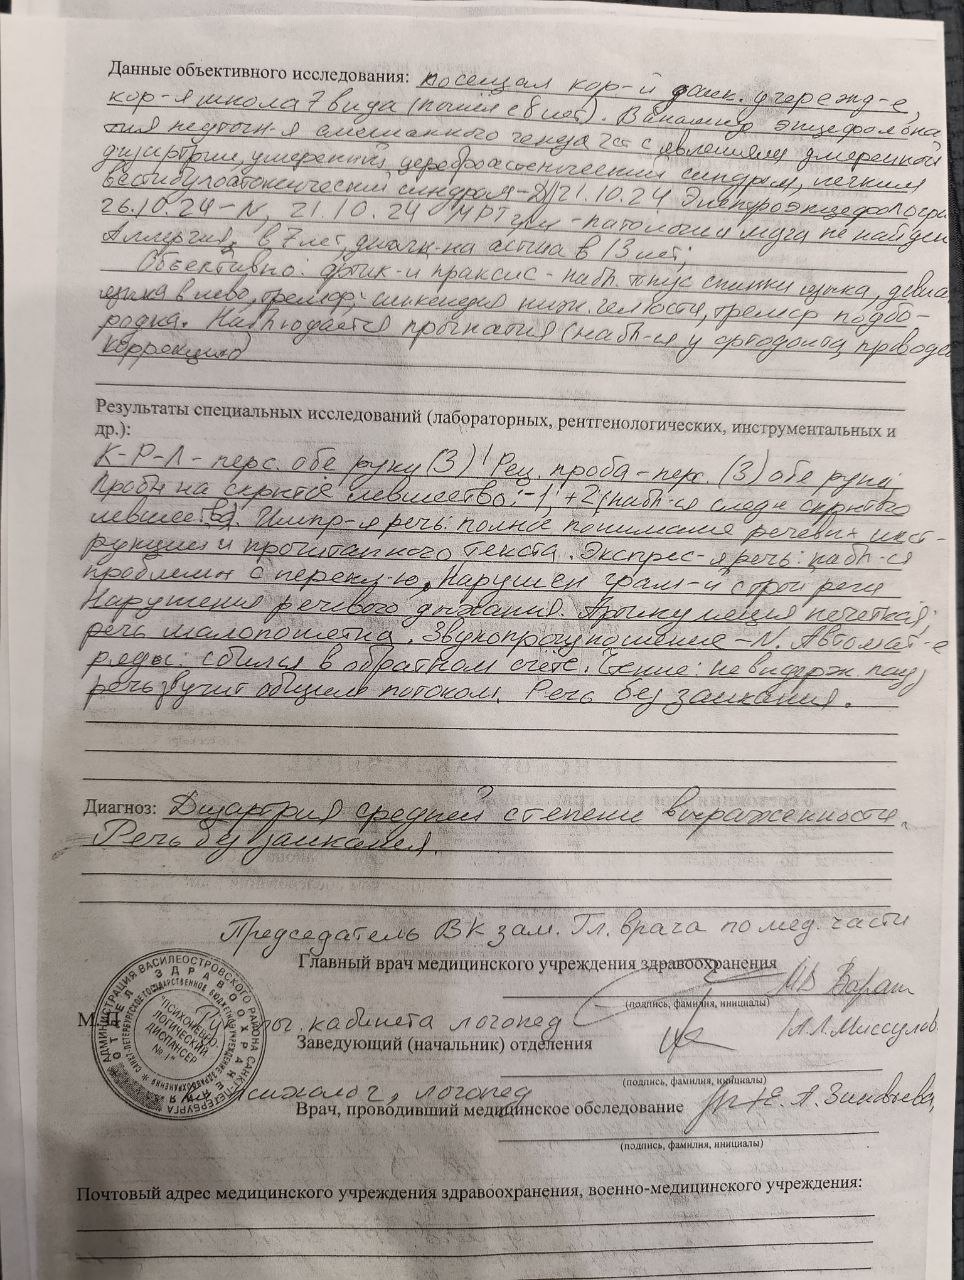 Данные объективного исследования: посещал кор-й дошк. учережд-е,
кор-я школа 7 вида (пошел с 8 лет). В анамнезе энцефалопа
тия неуточн-я смешанного генеза 2ст с явлениями умеренной
дизартрии, умеренный церебрастенический синдром, легкий
вестибулоатактический синдром - Д/21.10.24 Электроэнцефалогра
26.10.24 - N, 21.10.24 МРТ г/м - патологии мозга не найден
Аллергия, в 7 лет, диагн-на астма в 13 лет;
Объективно: артик-й праксис - набл. тонус спинки языка, девиа
языка влево, тремор; синкенезия нижн. челюсти, тремор подбо-
родка. Наблюдается прогнатия (набл-ся у ортодонта, провод
коррекцию)
Результаты специальных исследований (лабораторных, рентгенологических, инструментальных и
др.):
К-Р-Л - перс. обе руки (3) Рец. проба - перс. (3) обе руки
Пробы на скрытое левшество: -1, +2 (набл-ся следы скрытого
левшества). Импр-я речь: полное понимание речевых инст-
рукций и прочитанного текста. Экспрес-я речь: набл-ся
проблемы с перекл-ю. Нарушен грам-й строй речи
Нарушения речевого дыхания. Артикуляция нечеткая;
речь малопонятна. Звукопроизношение - N. Автомат-е
ряды: сбился в обратном счёте. Чтение: не выдерж. пауз,
речь звучит общим потоком. Речь без заикания.
Диагноз: Дизартрия средней степени выраженности.
Речь без заикания.
Председатель ВК зам. Гл. врача по мед. части
Главный врач медицинского учреждения здравоохранения
(подпись, фамилия, инициалы)
М.П.
кабинета логопед
Заведующий (начальник) отделения
(подпись, фамилия, инициалы)
психолог, логопед
Врач, проводивший медицинское обследование
Е. А. Зиновьева,
(подпись, фамилия, инициалы)
АДМИНИСТРАЦИЯ ВАСИЛЕОСТРОВСКОГО РАЙОНА САНКТ-ПЕТЕРБУРГА
ОТДЕЛ ЗДРАВООХРАНЕНИЯ
САНКТ-ПЕТЕРБУРГСКОЕ ГОСУДАРСТВЕННОЕ БЮДЖЕТНОЕ УЧРЕЖДЕНИЕ ЗДРАВООХРАНЕНИЯ
"ПСИХОНЕВРО-
ЛОГИЧЕСКИЙ
ДИСПАНСЕР
№ 1"
Почтовый адрес медицинского учреждения здравоохранения, военно-медицинского учреждения: